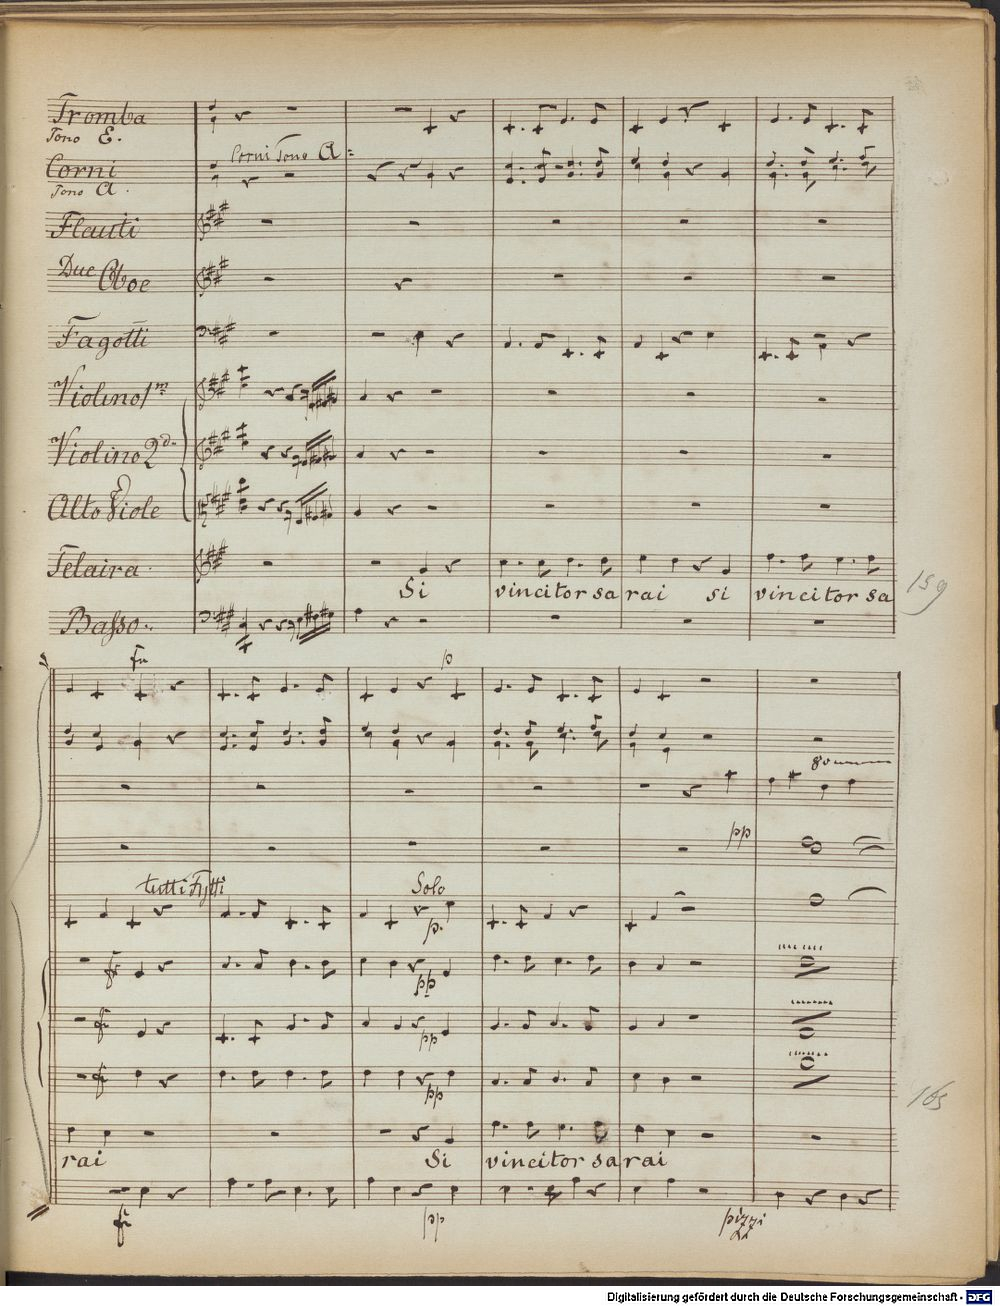 Tromba
Tono E.
Corni Tono A:
Corni
Tono A.
Flauti
Due Oboe
Fagotti
Violino 1mo
Violino 2do
Alto Viole
Telaira.
Si vincitor sarai si vincitor sa
159
Basso.
p
8va
pp
tutti Fgtti Solo
p.
pp
pp
pp
165
rai Si vincitor sarai
pp
pizzi
Digitalisierung gefördert durch die Deutsche Forschungsgemeinschaft - DFG